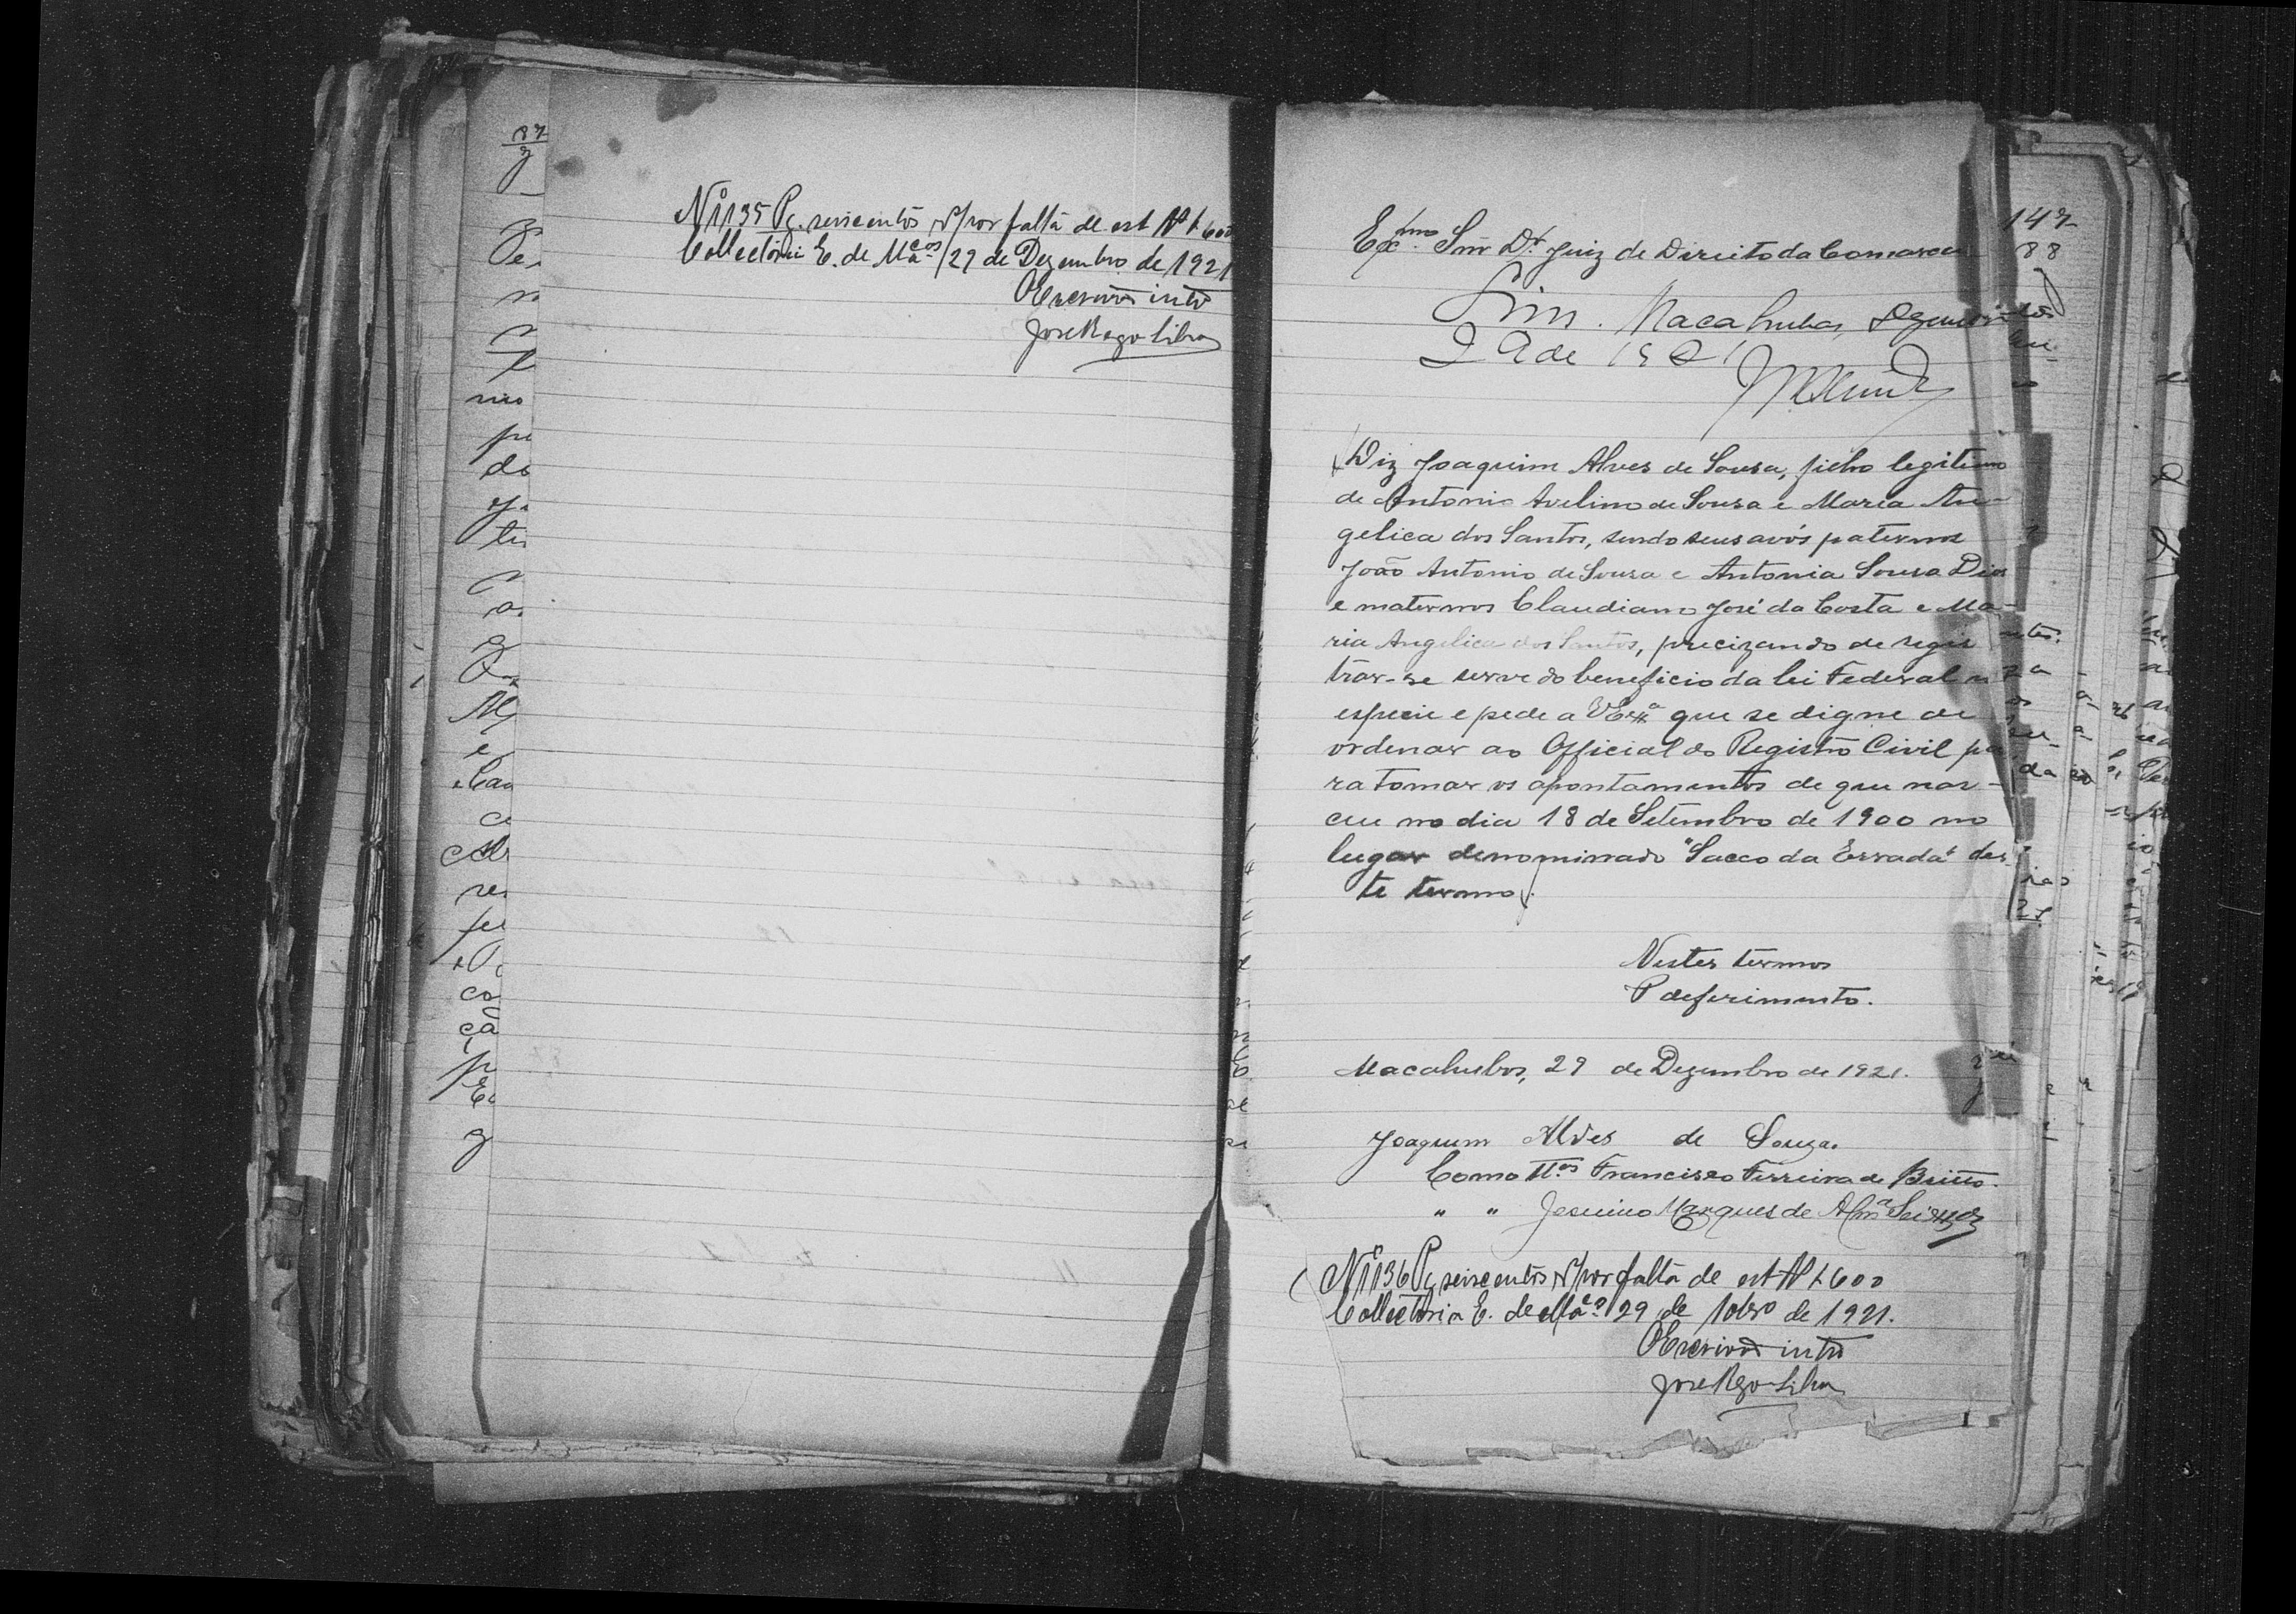 Nº 1135 Pg. seiscentos rs/por falta de est Rs $600
Collectoria E. de Macos 29 de Dezembro de 1921
O Escrivão intº
José Rego Silva
147
88
Exmo. Snr. Dr. Juiz de Direito da Comarca
Sim. Macahubas, Dezembro
29 de 1921
Diz Joaquim Alves de Sousa, filho legitimo
de Antonio Avelino de Sousa e Maria An-
gelica dos Santos, sendo seus avós paternos
João Antonio de Sousa e Antonia Sousa Dias
e maternos Claudiano José da Costa e Ma-
ria Angelica dos Santos, precizando de regis
trar-se serve do beneficio da lei Federal n
especie e pede a VExª que se digne de
ordenar ao Official do Registro Civil pa
ra tomar os apontamentos de que nas-
ceu no dia 18 de Setembro de 1900 no
lugar denominado "Sacco da Errada" des-
te termo.
Nestes termos
P deferimento.
Macahubas, 29 de Dezembro de 1921.
Joaquim Alves de Souza.
Como ttas Francisco Ferreira de Britto.
" " Jesuino Marques de Almª Seixas
Nº 1136 Pg seiscentos rs/por falta de est Rs $600
Collectoria E. de Macº 29 de 10bro de 1921.
O Escrivão intº
José Rego Silva